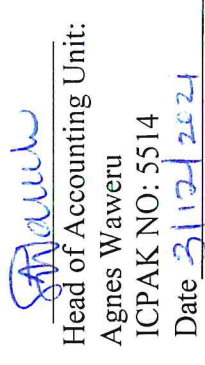 Head of Accounting Unit:
Agnes Waweru
ICPAK NO: 5514
Date 3/12/2021